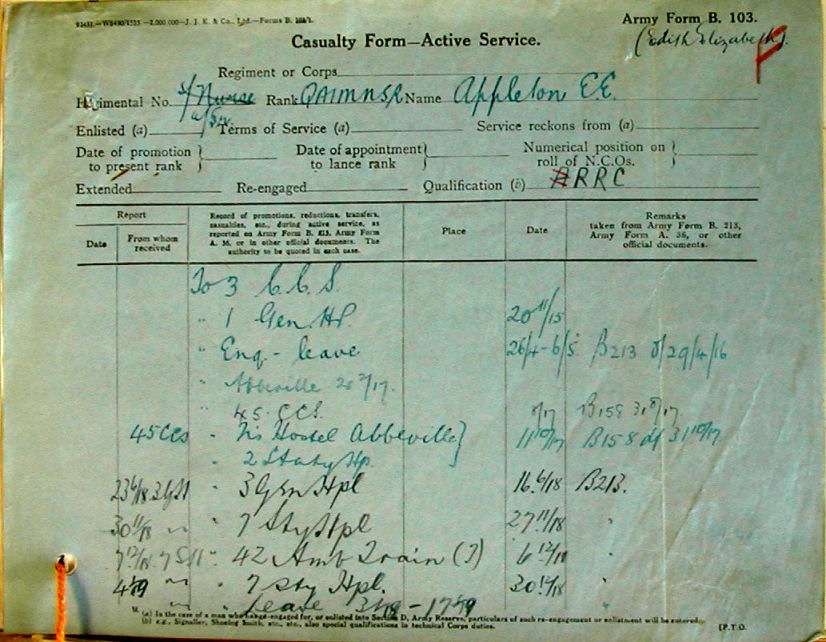 Army Form B. 103.
Casualty Form—Active Service.
(Edith Elizabeth).
Regiment or Corps
Regimental No. S/Nurse Rank QAIMNSR Name Appleton E.E.
Enlisted (a) Terms of Service (a) Service reckons from (a)
Date of promotion to present rank } Date of appointment to lance rank } Numerical position on roll of N.C.Os. }
Extended Re-engaged Qualification (b) ARRC
Report
Date
From whom received
Record of promotions, reductions, transfers, casualties, etc., during active service, as reported on Army Form B. 213, Army Form A. 36, or in other official documents. The authority to be quoted in each case.
Place
Date
Remarks
taken from Army Form B. 213, Army Form A. 36, or other official documents.
To 3 C.C.S.
" 1 Gen. HP. 20 11/15
" Eng - leave 26/4 - 6/5 B213 d/29/4/16
" Abbeville
" 45 CCS. 8/17 B158
45 CCS " Hostel Abbeville } 11 10/17 B158 d/ 31 10/17
" 2 Staty Hp.
23 6/18 3 Gn " 3 Gen Hpl 16.6/18 B213.
30 11/18 " " 7 Sty Hpl 27 11/18 "
7 12/18 7 SH " 42 Amb Train (T) 6 12/18 "
" " 7 Sty Hpl. 30 12/18 "
" " Leave
(a) In the case of a man who has re-engaged for, or enlisted into Section D, Army Reserve, particulars of such re-engagement or enlistment will be entered.
(b) e.g., Signaller, Shoeing Smith, etc., etc., also special qualifications in technical Corps duties. [P.T.O.